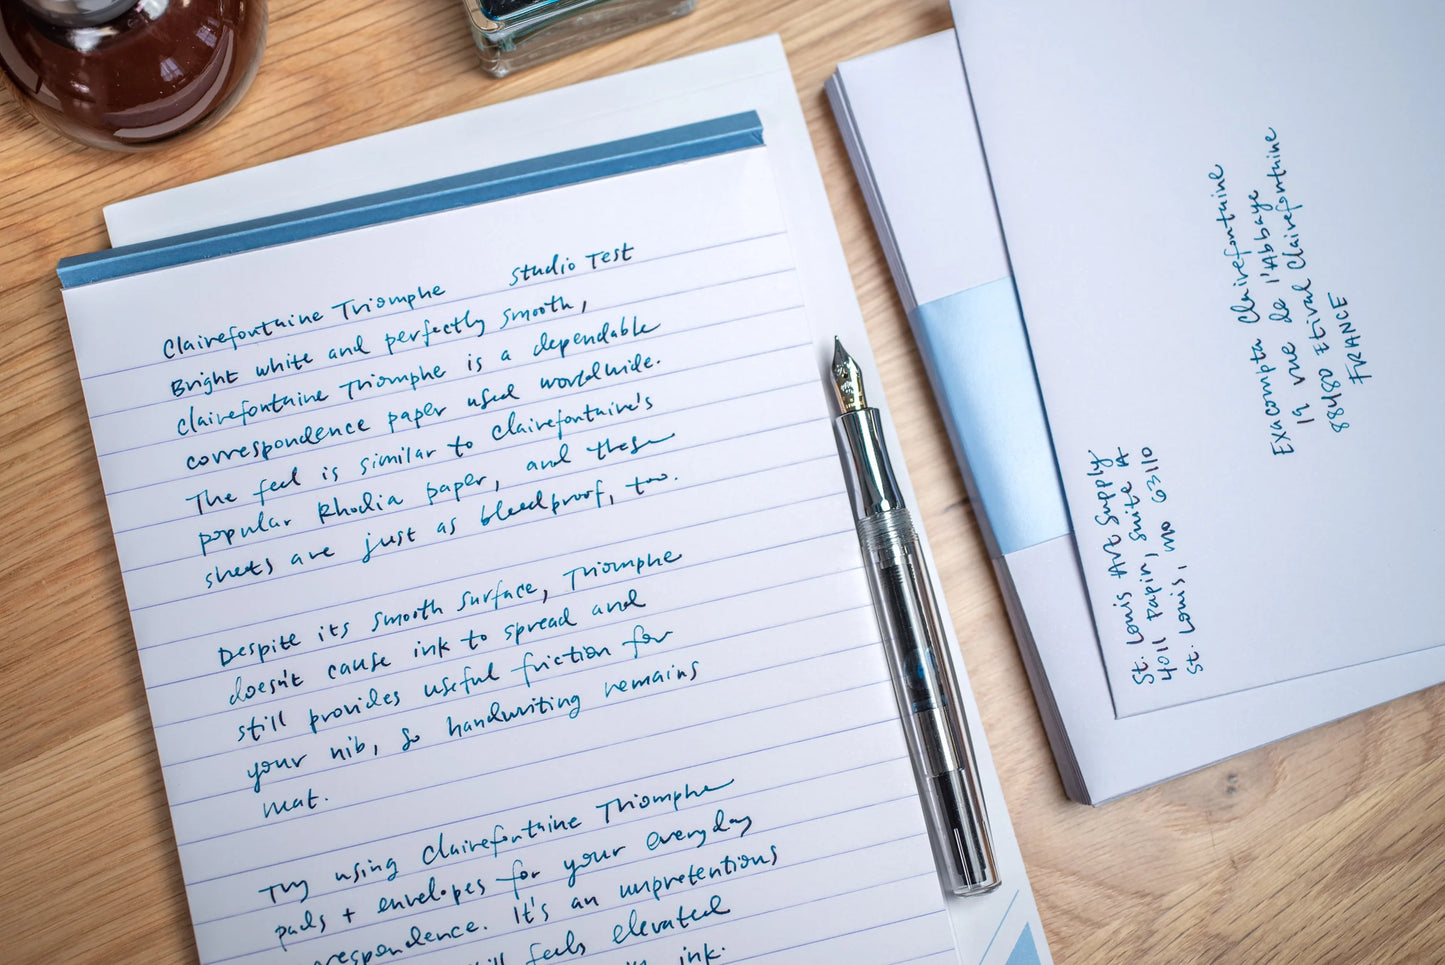 Clairefontaine Triomphe Studio Test
Bright white and perfectly smooth,
Clairefontaine Triomphe is a dependable
correspondence paper used worldwide.
The feel is similar to Clairefontaine's
popular Rhodia paper, and these
sheets are just as bleedproof, too.
Despite its smooth surface, Triomphe
doesn't cause ink to spread and
still provides useful friction for
your nib, so handwriting remains
neat.
Try using Clairefontaine Triomphe
pads + envelopes for your everyday
respondence. It's an unpretentious
ill feels elevated
ink.
St. Louis Art Supply
4011 Papin, Suite A
St. Louis, MO 63110
Exacompta Clairefontaine
19 rue de l'Abbaye
88480 Etival Clairefontaine
FRANCE